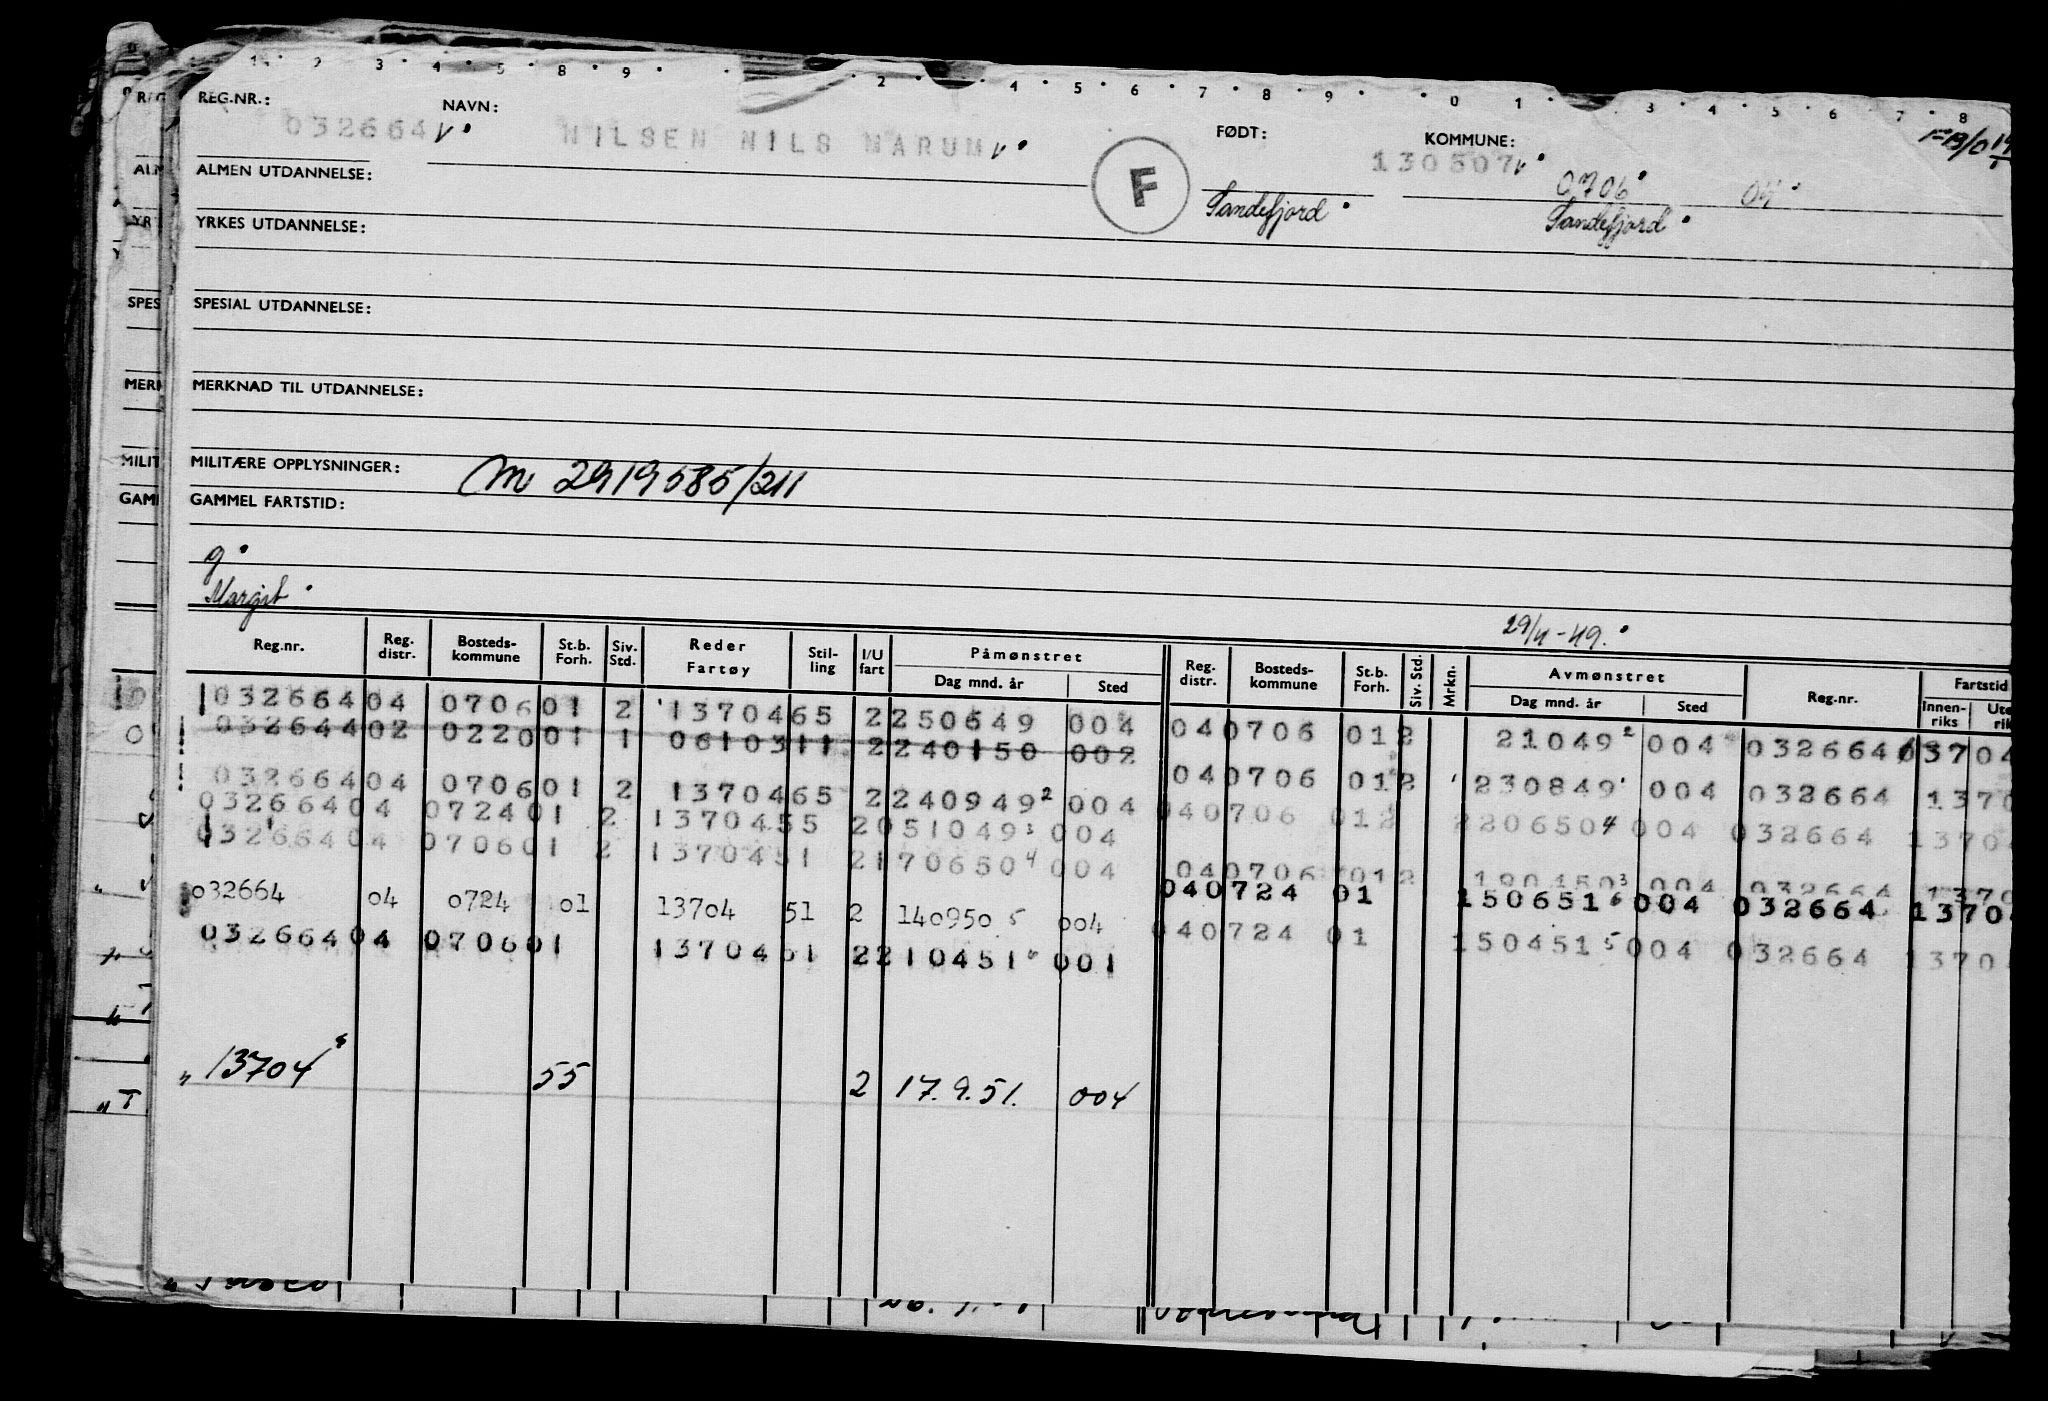 1 2 3 4 5 8 9 2 4 5 6 7 8 9 0 1 3 4 5 6 7 8
REG.NR.: NAVN: FØDT: KOMMUNE:
032664 v NILSEN NILS MARUM v F 130507 v 0706 04
ALMEN UTDANNELSE: Sandefjord Sandefjord
YRKES UTDANNELSE:
SPESIAL UTDANNELSE:
MERKNAD TIL UTDANNELSE:
MILITÆRE OPPLYSNINGER: m 2919585/211
GAMMEL FARTSTID:
g
Margit
29/4-49.
Reg.nr. Reg. distr. Bosteds-kommune St.b. Forh. Siv. Std. Reder Fartøy Stil-ling I/U fart Påmønstret Dag mnd. år Sted Reg. distr. Bosteds-kommune St.b. Forh. Siv. Std. Mrkn. Avmønstret Dag mnd. år Sted Reg.nr. Fartstid Innen-riks
032664 04 0706 01 2 13704 65 2 250649 004 04 0706 01 2 21049 2 004 032664 13704
032644 02 0220 01 1 06103 11 2 240150 002
032664 04 0706 01 2 13704 65 2 240949 2 004 04 0706 01 2 230849 1 004 032664 1370
032664 04 0724 01 2 13704 55 2 051049 3 004 04 0706 01 2 220650 4 004 032664 13704
032664 04 0706 01 2 13704 51 2 170650 4 004 04 0706 01 2 190450 3 004 032664 1370
032664 04 0724 01 13704 51 2 140950 5 004 04 0724 01 150651 6 004 032664 1370
032664 04 0706 01 13704 61 2 210451 6 001 04 0724 01 150451 5 004 032664 1370
" 13704 55 2 17.9.51. 004